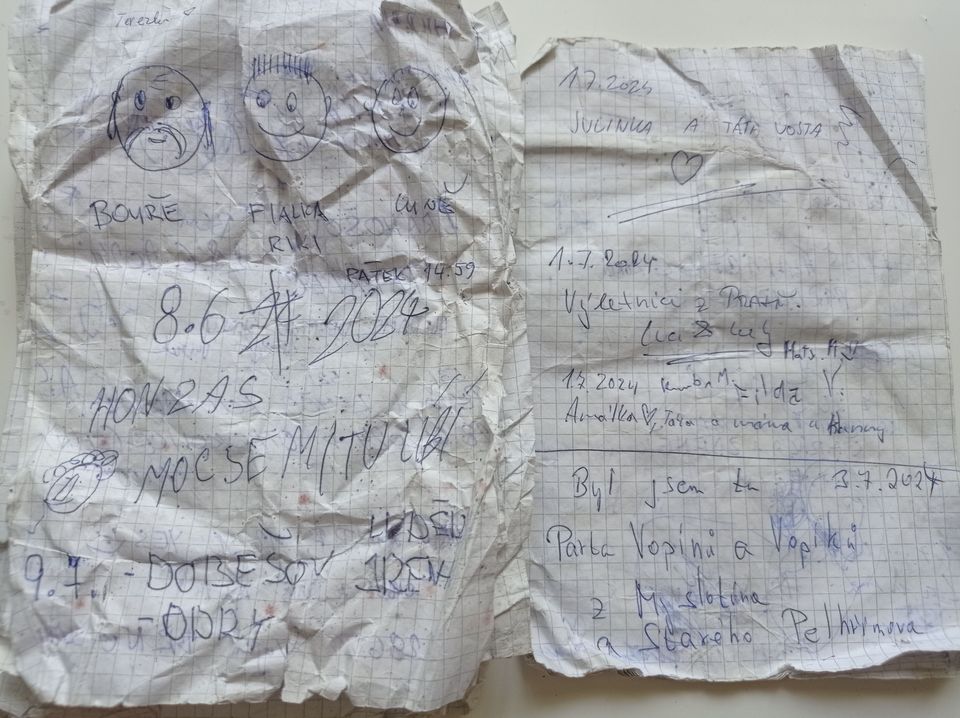 Terezka
BOUŘE FIALKA LUNĚ
RIKI
PÁTEK 14.59
8.6 2024
HONZA.S
MOC SE MI TU LÍBÍ
LUDĚK
9.7. - DOBEŠOV IRENA
- ODRY
1.7.2024
JULINKA A TÁTA VOSTA
1.7.2024
Výletníci z PRAHY.
17.2024
Amálka, Táta a máma
Byl jsem tu 3.7.2024
Parta Vopinů a Vopiků
z Myslotína
a Starého Pelhřimova